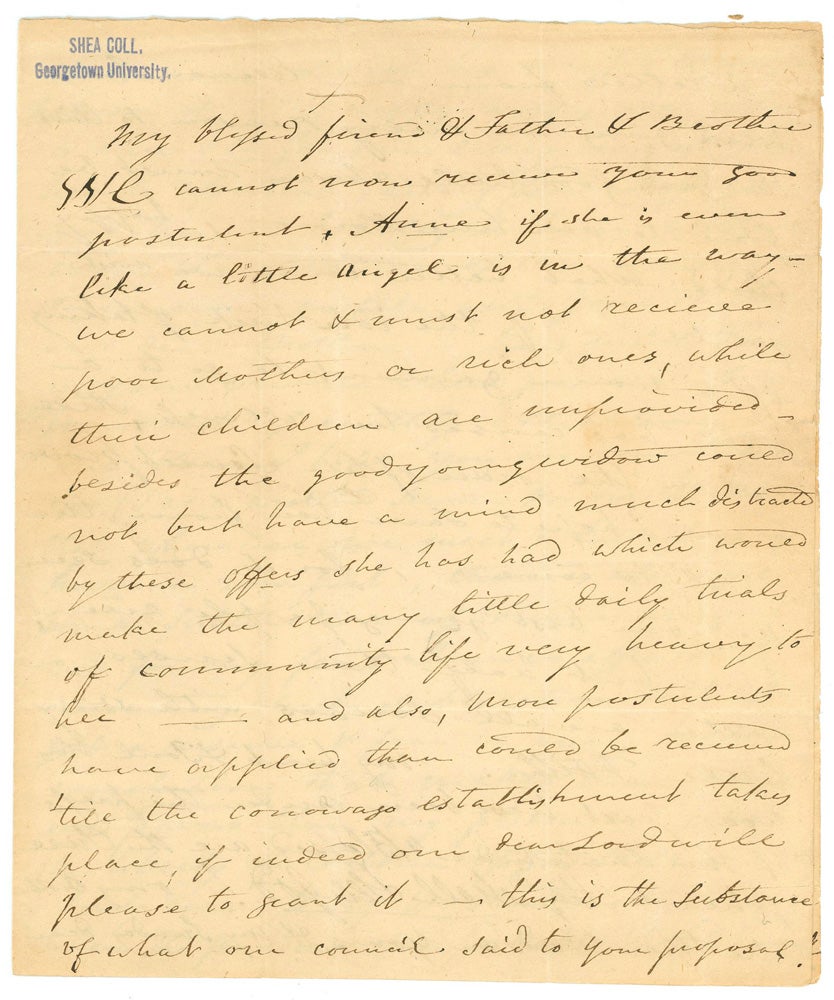 SHEA COLL.
Georgetown University.
My blessed friend & Father & Brother
cannot now receive your good
postulent, Anne if she is even
like a little angel is in the way –
we cannot & must not recieve
poor Mothers or rich ones, while
their children are unprovided –
besides the good young widow could
not but have a mind much distracted
by these offers she has had which would
make the many little daily trials
of community life very heavy to
her —— and also, More postulents
have applied than could be received
'till the conowago establishment takes
place, if indeed our dear Lord will
please to grant it – this is the Substance
of what our council said to your proposal.